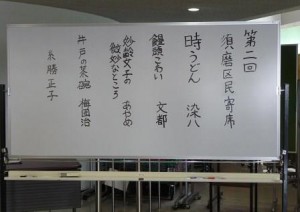 第二回
須磨区民寄席
時うどん 染八
饅頭こわい 文都
妙齢女子の
微妙なところ あやめ
井戸の茶碗 梅團治
糸勝正子